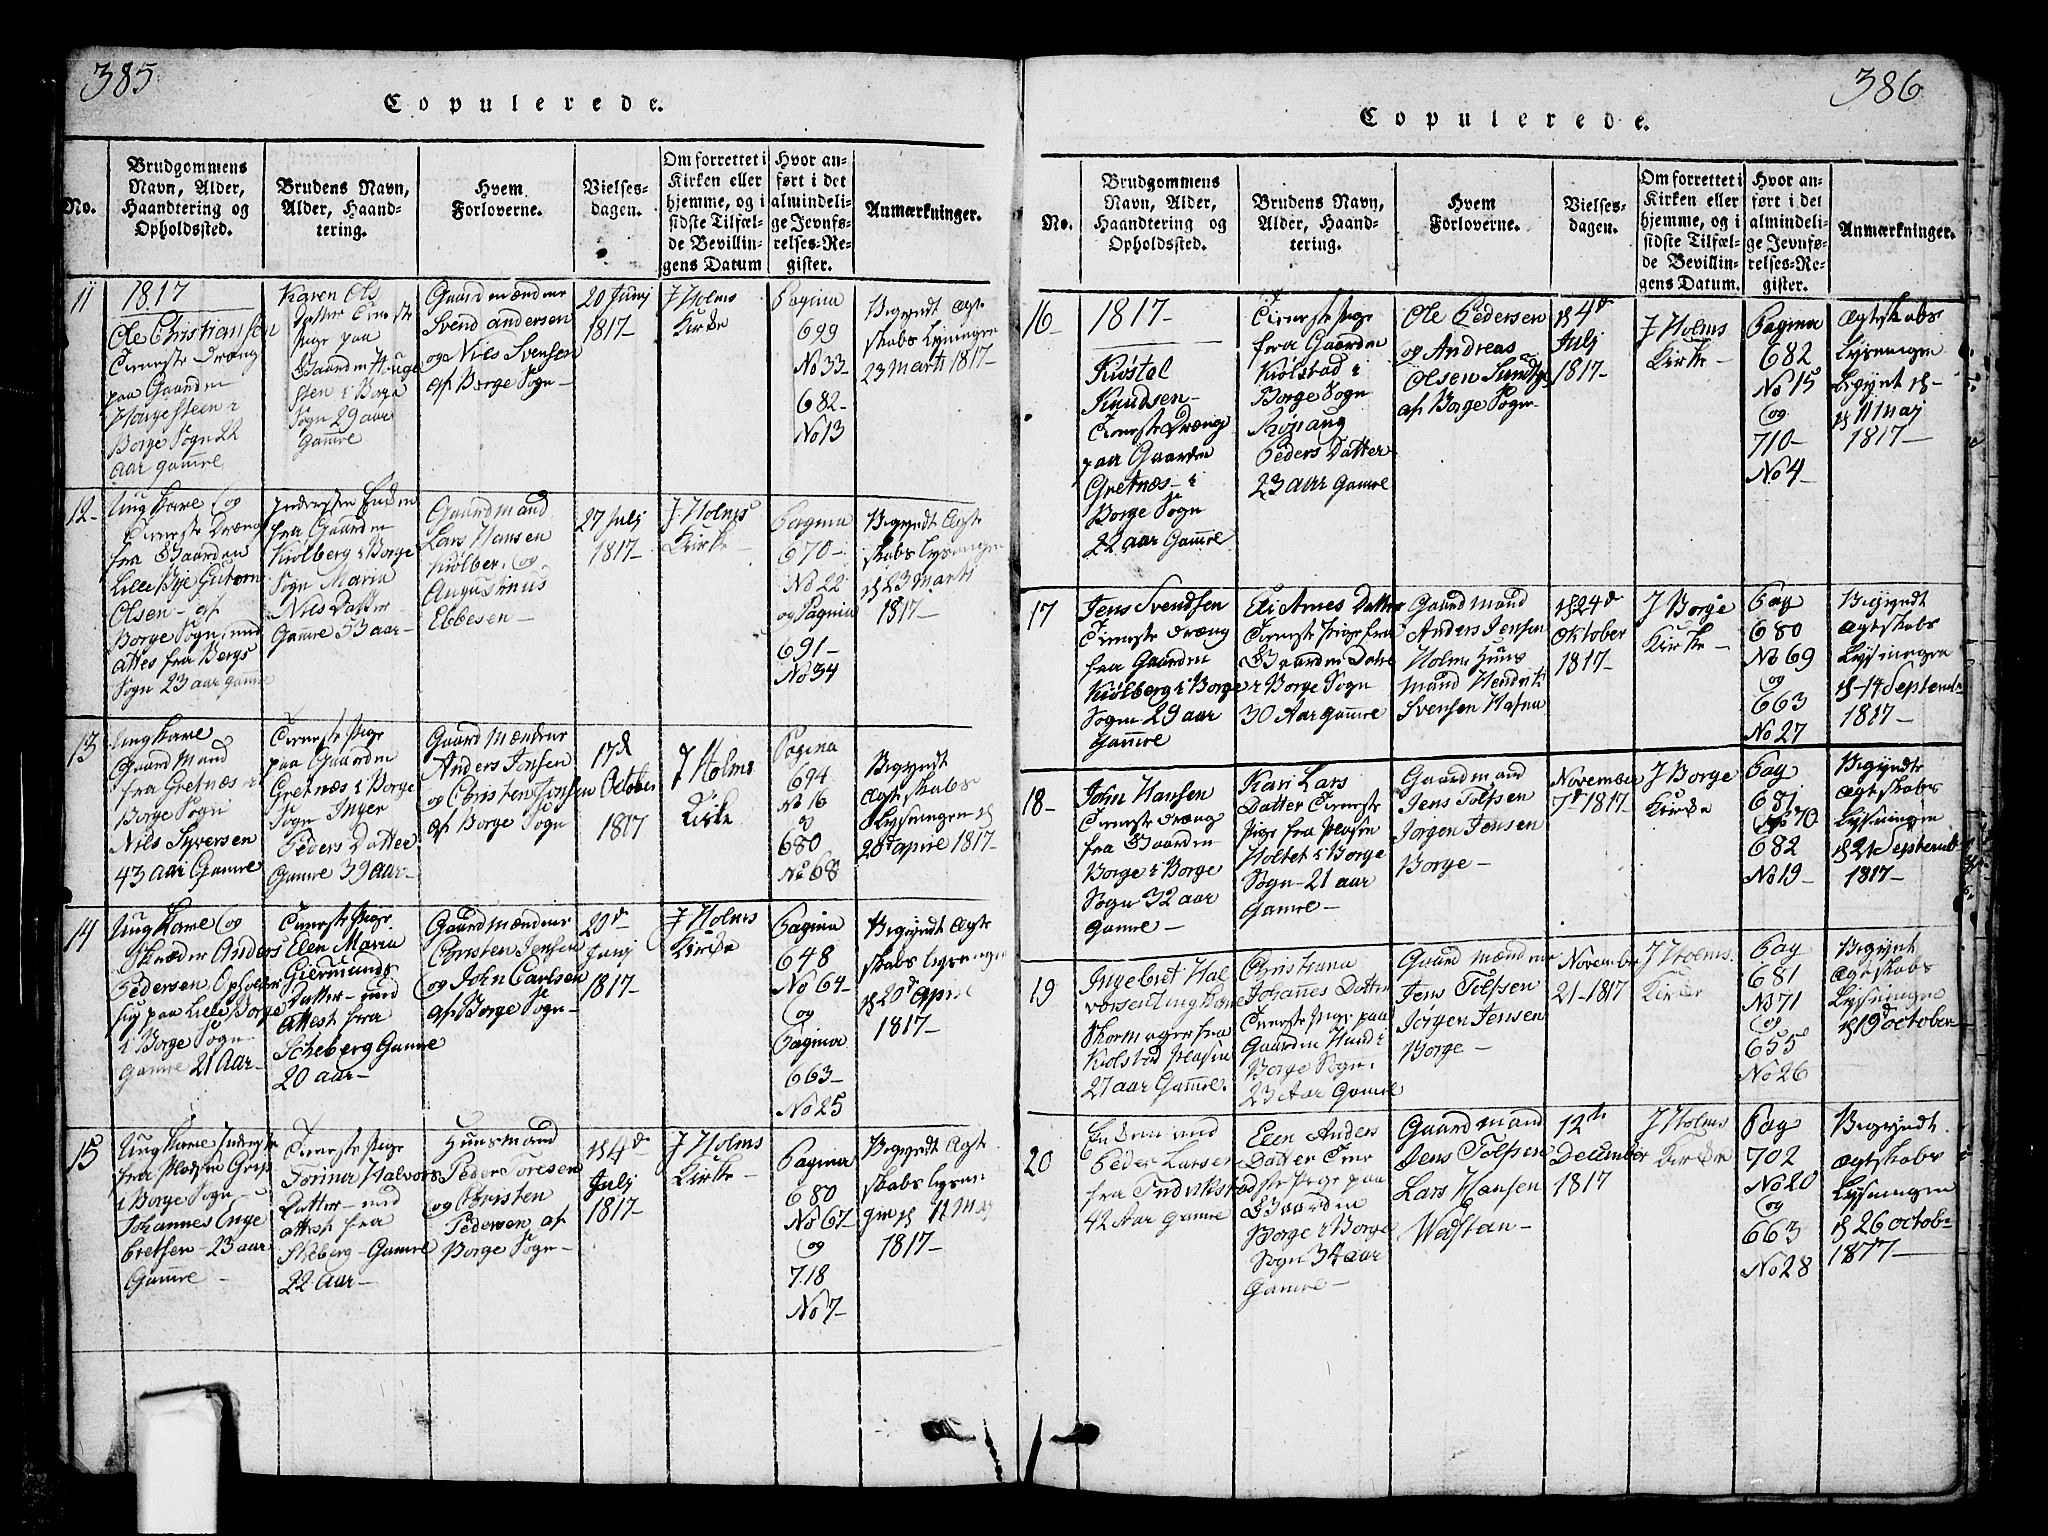 385
Copulerede.
No.
Brudgommens
Navn, Alder,
Haandtering og
Opholdssted.
Brudens Navn,
Alder, Haand-
tering.
Hvem
Forloverne.
Vielses-
dagen.
Om forrettet i
Kirken eller
hjemme, og i
sidste Tilfæl-
de Bevillin-
gens Datum
Hvor an-
ført i det
almindeli-
ge Jevnfø-
relses-Re-
gister.
Anmærkninger.
11
1817
Ole Christiansen
Tieneste Dræng
paa Gaarden
Haugesteen i
Borge Sogn 22
aar gamle
Karen Ols
Datter Tieneste
Pige paa
Gaarden Houge
sten i Borge
Sogn 29 aar
Gamle
Gaardmændene
Svend Andersen
og Nils Svensen
af Borge Sogn
20 Junj
1817
J Holms
Kirke
Pagina
699
No 33
682
No 13
Begyndt Ægte
skabs Lysninger
23 Marti 1817
12
Ungkarl og
Tieneste Dræng
fra Gaarden
Lille Bye Gutorm
Olsen af
Borge Sogn med
Attes fra Bergs
Sogn 23 aar gamle
Inderste Enken
fra Gaarden
Kiølberg i Borge
Sogn Maria
Nils Datter
Gamle 53 aar
Gaardmand
Lars Hansen
Kiølber og
Augustinus
Ebbesen
27 Julj
1817
J Holms
Kirke
Pagina
670
No 22
og Pagina
691
No 34
Begyndt Ægte
skabs Lysningen
d 23 Marti
1817
13
Ungkarl
Gaard Mand
fra Gretnæs i
Borge Sogn
Nils Syversen
43 aar Gamle
Tieneste Pige
paa Gaarden
Gretnæs i Borge
Sogn Inger
Peders Datter
Gamle 39 aar
Gaard Mændene
Anders Jensen
og Christen Jensen
af Borge Sogn
17d
October
1817
J Holms
Kirke
Pagina
694
No 16
og
680
No 68
Begyndt
Ægteskabs
Lysningen d
20 Aprel 1817
14
Ungkarl og
Skræder Anders
Pedersen Opholder
sig paa Lille Borge
i Borge Sogn
Gamle 21 Aar
Tieneste Pige
Elen Maria
Giermunds
Datter med
Attest fra
Scheberg Gamle
20 aar
Gaard Mændene
Christen Jensen
og John Carlsen
af Borge Sogn
29d
Junj
1817
J Holms
Kirke
Pagina
648
No 64
og
Pagina
663
No 25
Begyndt Ægte
skabs Lysningen
d 20d Aprel
1817
15
Ungkarl Inderste
fra Pladsen Greps
i Borge Sogn
Johannes Enge
bretsen 23 aar
Gamle
Tieneste Pige
Torina Halvors
Datter med
Attest fra
Skeberg Gamle
22 Aar
Huusmand
Peder Toresen
og Christen
Pedersen af
Borge Sogn
d 4d
Julj
1817
J Holms
Kirke
Pagina
680
No 67
og
718
No 7
Begyndt Ægte
skabs Lysnin
gen d 11 May
1817
386
Copulerede.
No.
Brudgommens
Navn, Alder,
Haandtering og
Opholdssted.
Brudens Navn,
Alder, Haand-
tering.
Hvem
Forloverne.
Vielses-
dagen.
Om forrettet i
Kirken eller
hjemme, og i
sidste Tilfæl-
de Bevillin-
gens Datum.
Hvor an-
ført i det
almindeli-
ge Jevnfø-
relses-Re-
gister.
Anmærkninger.
16
1817
Knudsen
Tieneste Dræng
paa Gaarden
Gretnæs i
Borge Sogn
22 aar Gamle
Tieneste Pige
fra Gaarden
Kiølstad i
Borge Sogn
Peders Datter
23 aar Gamle
Ole Pedersen
og Andreas
Olsen
af Borge Sogn
d 4d
Julj
1817
J Holms
Kirke
Pagina
682
No 15
og
710
No 4
Ægteskabs
Lysningen
begynt d
d 11 May
1817
17
Jens Svendsen
Tieneste Dræng
fra Gaarden
Kiølberg i Borge
Sogn 29 aar
Gamle
Eli Arnes Datter
Tieneste Pige fra
Gaarden Dahle
i Borge Sogn
30 Aar gamle
Gaardmand
Anders Jensen
Holm Huus
mand Hendrik
Svensen
d 24d
Oktober
1817
J Borge
Kirke
Pag
680
No 69
og
663
No 27
Begyndt
Ægteskabs
Lysningen
d 14 Septemb
1817
18
John Hansen
Tieneste Dræng
fra Gaarden
Borge i Borge
Sogn 32 aar
Gamle
Kari Lars
Datter Tieneste
Pige fra Pladsen
Holtet i Borge
Sogn 21 aar
Gamle
Gaardmand
Jens Tolfsen
Jørgen Jensen
Borge
November
7d 1817
J Borge
Kirke
Pag
681
No 70
682
No 19
Begyndte
Ægteskabs
Lysningen
d 21 Septemb
1817
19
Ingebret Hal
vorsen Ungkarl
Skomager fra
Kiølstad Pladsen
27 aar Gamle
Christiana
Johannes Datter
Tieneste Pige paa
Gaarden Hund i
Borge Sogn
23 Aar Gamle
Gaard Mændene
Jens Tolfsen
Jørgen Jensen
Borge
November
21 1817
J Holms
Kirke
Pag
681
No 71
og
655
No 26
Begynt
Ægteskabs
Lysningen
d 19d October
20
Enkemand
Peder Larsen
fra Fredrikstad
42 Aar Gamle
Elen Anders
Datter Tiene
ste Pige paa
Gaarden
Borge i Borge
Sogn 34 aar
Gamle
Gaardmand
Jens Tolfsen
Lars Hansen
12th
December
1817
J Holms
Kirke
Pag
702
No 20
og
663
No 28
Begyndt
Ægteskabs
Lysningen
d 26 octob
1817